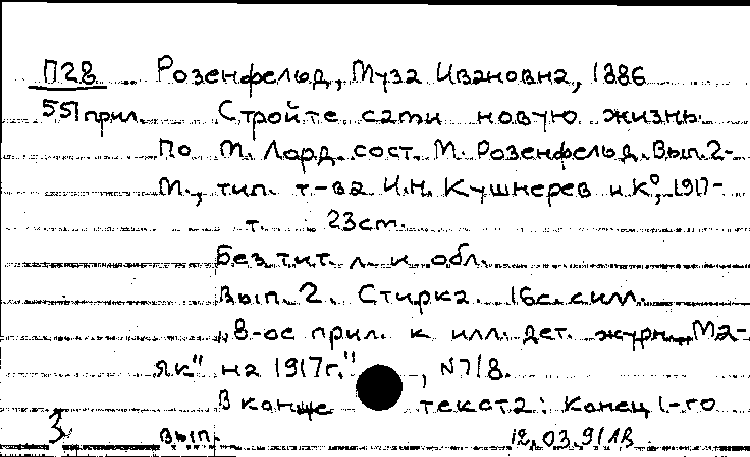 П28 Розенфельд, Муза Ивановна, 1886
551прил. Стройте сами новую жизнь.
По М. Лорд. сост. М. Розенфельд. Вып. 2-
М., тип. т-ва И.Н. Кушнерев и К°, 1917-
т. 23см.
Без тит. л. и обл.
Вып. 2. Стирка. 16с. с илл.
„8-ое прил. к илл. дет. журн. „Ма-
як" на 1917г.", N7/8.
В конце текста: Конец 1-го
З вып. 12.03.91